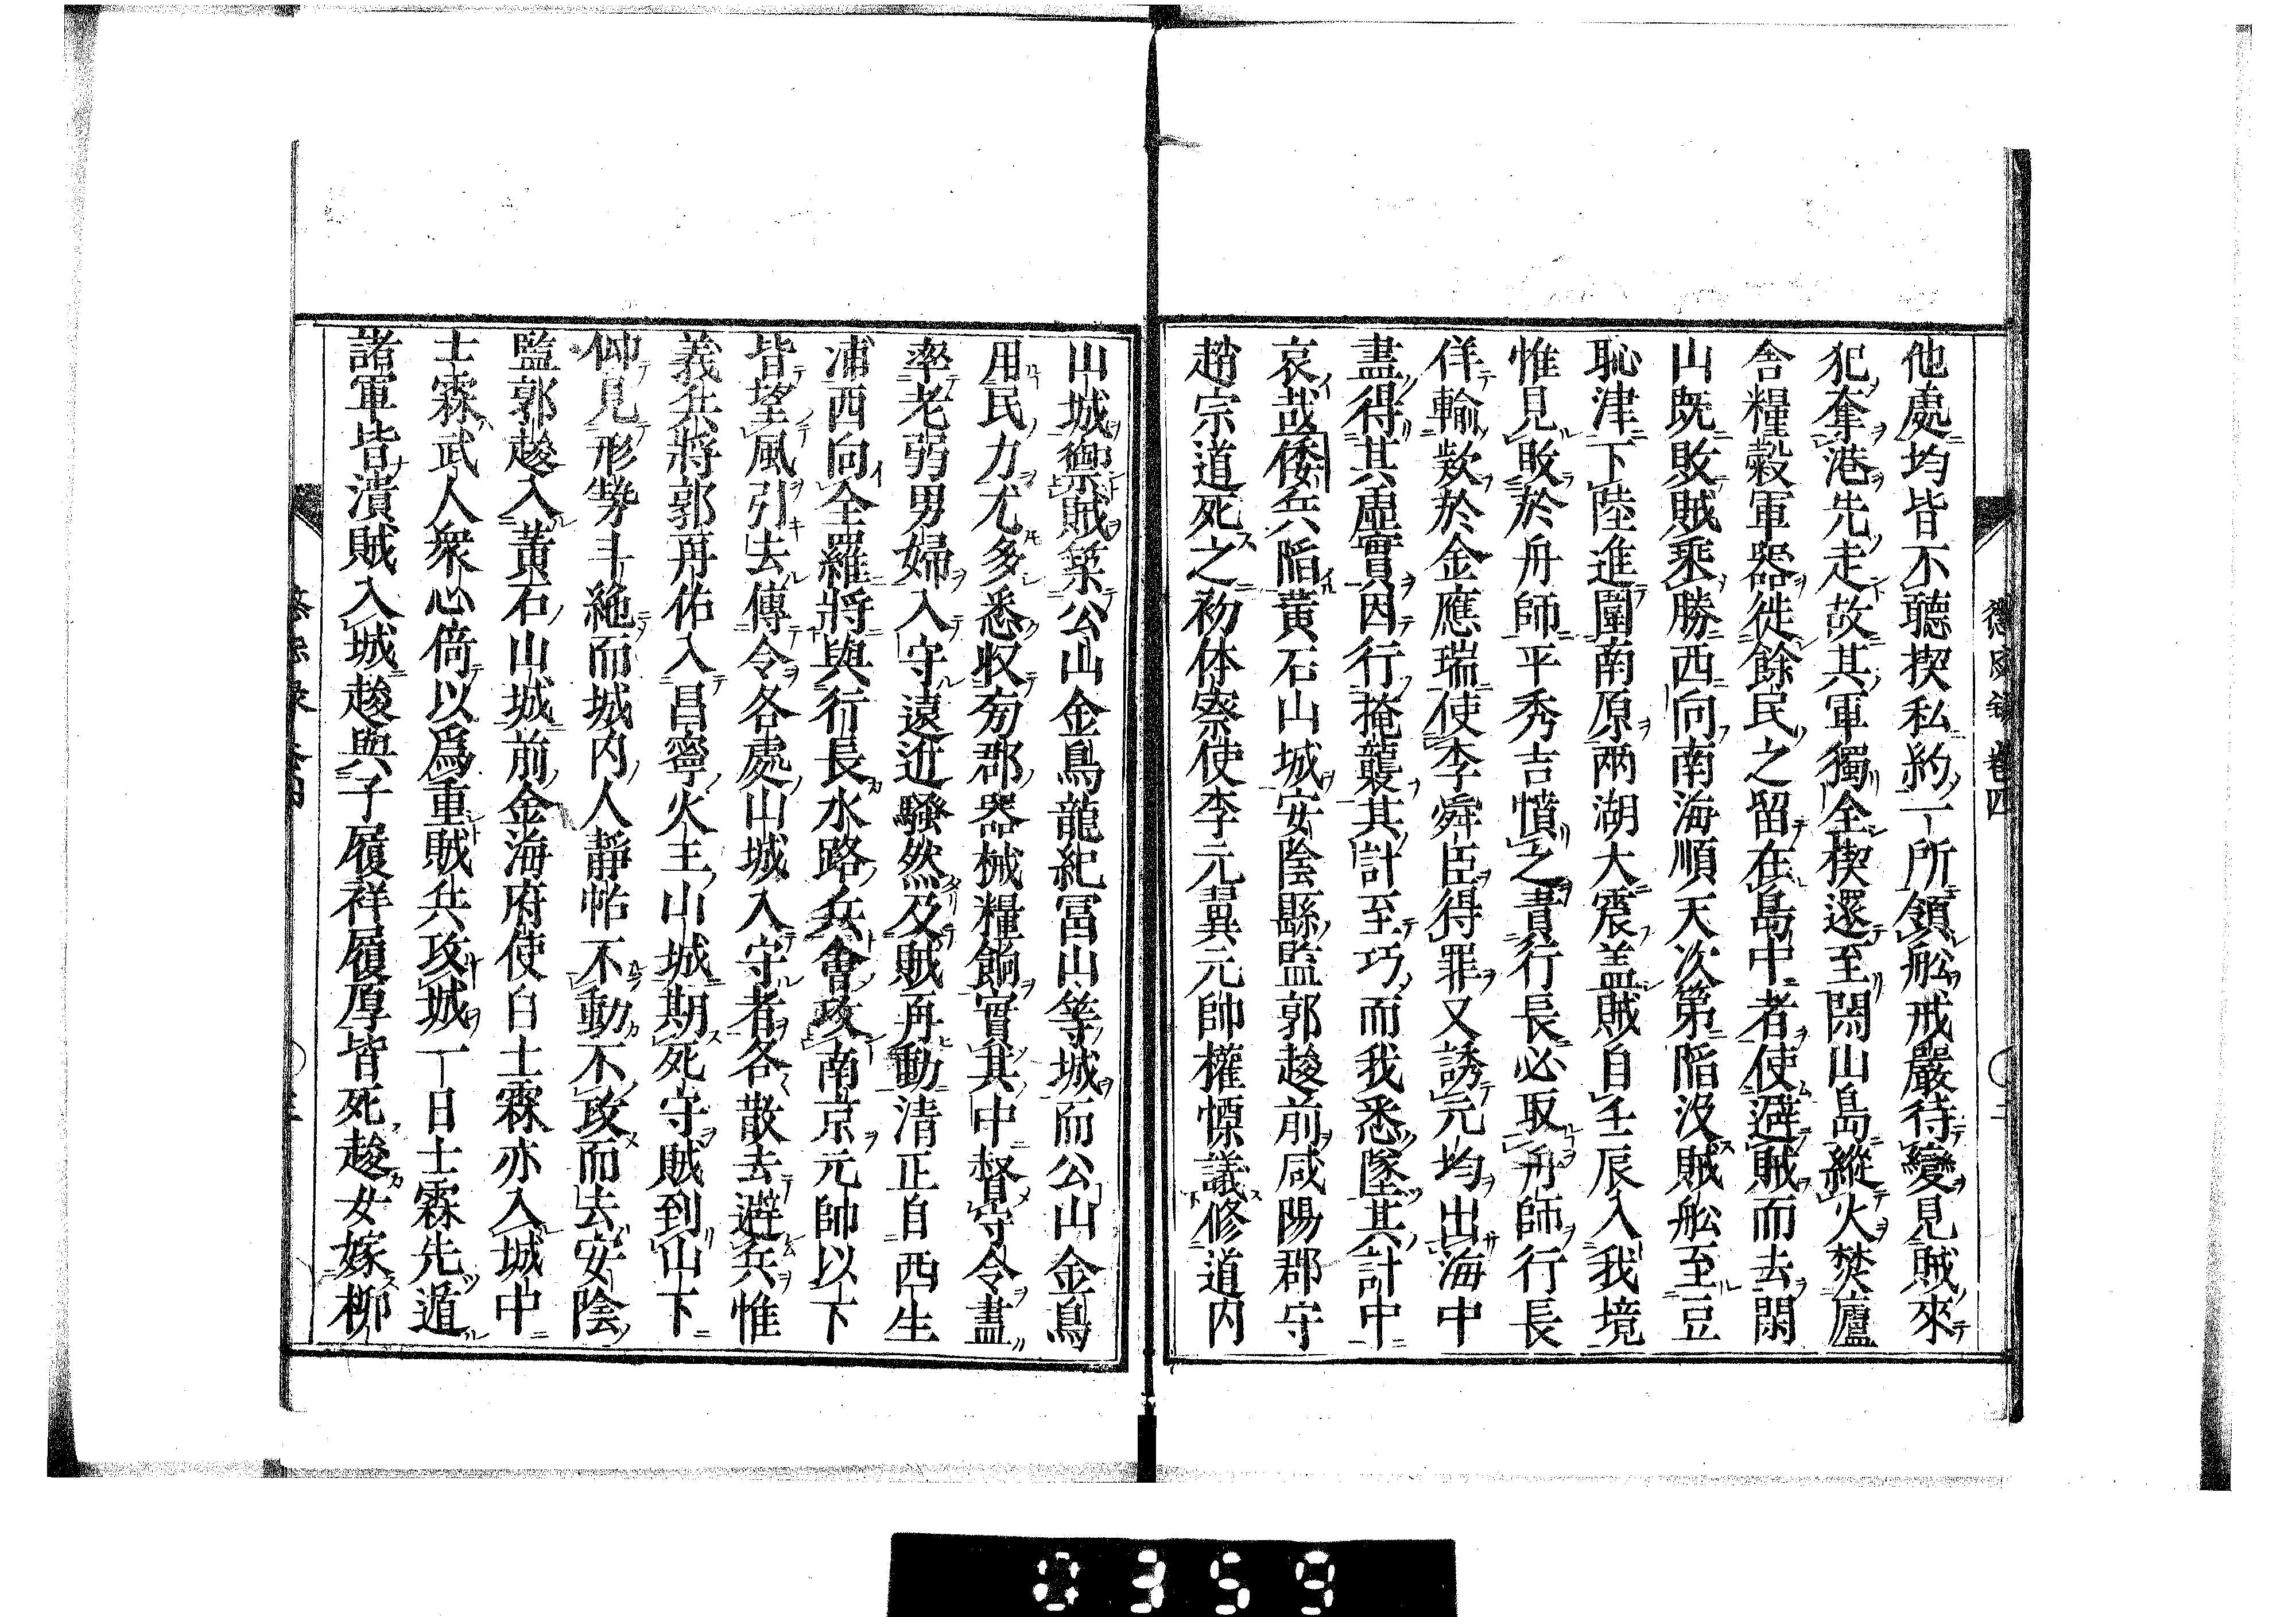 懲毖録 卷四 二
他處均皆不聽楔私約一所領舩戒嚴待變見賊來
犯奪港先走故其軍獨全楔還至閑山島縱火焚廬
舎糧穀軍器徙餘民之留在島中者使避賊而去閑
山既敗賊乘勝西向南海順天次第陥沒賊舩至豆
恥津下陸進圍南原兩湖大震盖賊自壬辰入我境
惟見敗於舟師平秀吉憤之責行長必取舟師行長
佯輸欵於金應瑞使李舜臣得罪又誘元均出海中
盡得其虛實因行掩襲其計至巧而我悉墜其計中
哀哉倭兵陥黄石山城安陰縣監郭䞭前咸陽郡守
趙宗道死之初体察使李元翼元帥權慄議修道内
山城禦賊築公山金烏龍紀冨山等城而公山金烏
用民力尤多悉収旁郡器械糧餉實其中督守令盡
率老弱男婦入守遠近騷然及賊再動清正自西生
浦西向全羅將與行長水路兵會攻南京元帥以下
皆望風引去傳令各處山城入守者各散去避兵惟
義兵將郭再佑入昌寧火王山城期死守賊到山下
仰見形勢斗絶而城内人靜帖不動不攻而去安陰
監郭䞭入黄石山城前金海府使白士霖亦入城中
士霖武人衆心倚以爲重賊兵攻城一日士霖先遁
諸軍皆潰賊入城䞭與子履祥履厚皆死䞭女嫁柳
0359